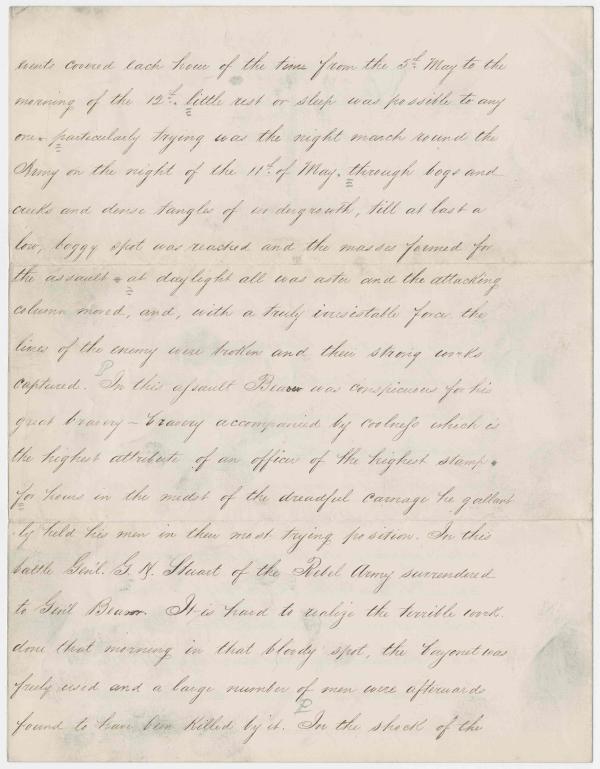 events covered each hour of the time from the 5th. May to the
morning of the 12th. little rest or sleep was possible to any
one. particularly trying was the night march round the
Army on the night of the 11th. of May. through bogs and
creeks and dense tangles of undergrowth, till at last a
low, boggy spot was reached and the masses formed for
the assault. at daylight all was astir and the attacking
column moved, and, with a truly irresistable force the
lines of the enemy were broken and their strong works
captured. In this assault Beaver was conspicuous for his
great bravery – bravery accompanied by coolness which is
the highest attribute of an officer of the highest stamp.
for hours in the midst of the dreadful carnage he gallant
ly held his men in their most trying position. In this
battle Genl. G. H. Stuart of the Rebel Army surrendered
to Genl Beaver. It is hard to realize the terrible work
done that morning in that bloody spot, the bayonet was
freely used and a large number of men were afterwards
found to have been killed by it. In the shock of the